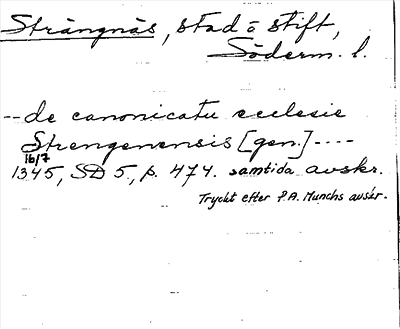 Strängnäs, stad o stift,
Söderm. l.
-- de canonicatu ecclesie
Strengenensis [gen.] ----
16/7
1345, SD 5, p. 474. samtida avskr.
Tryckt efter P.A. Munchs avskr.